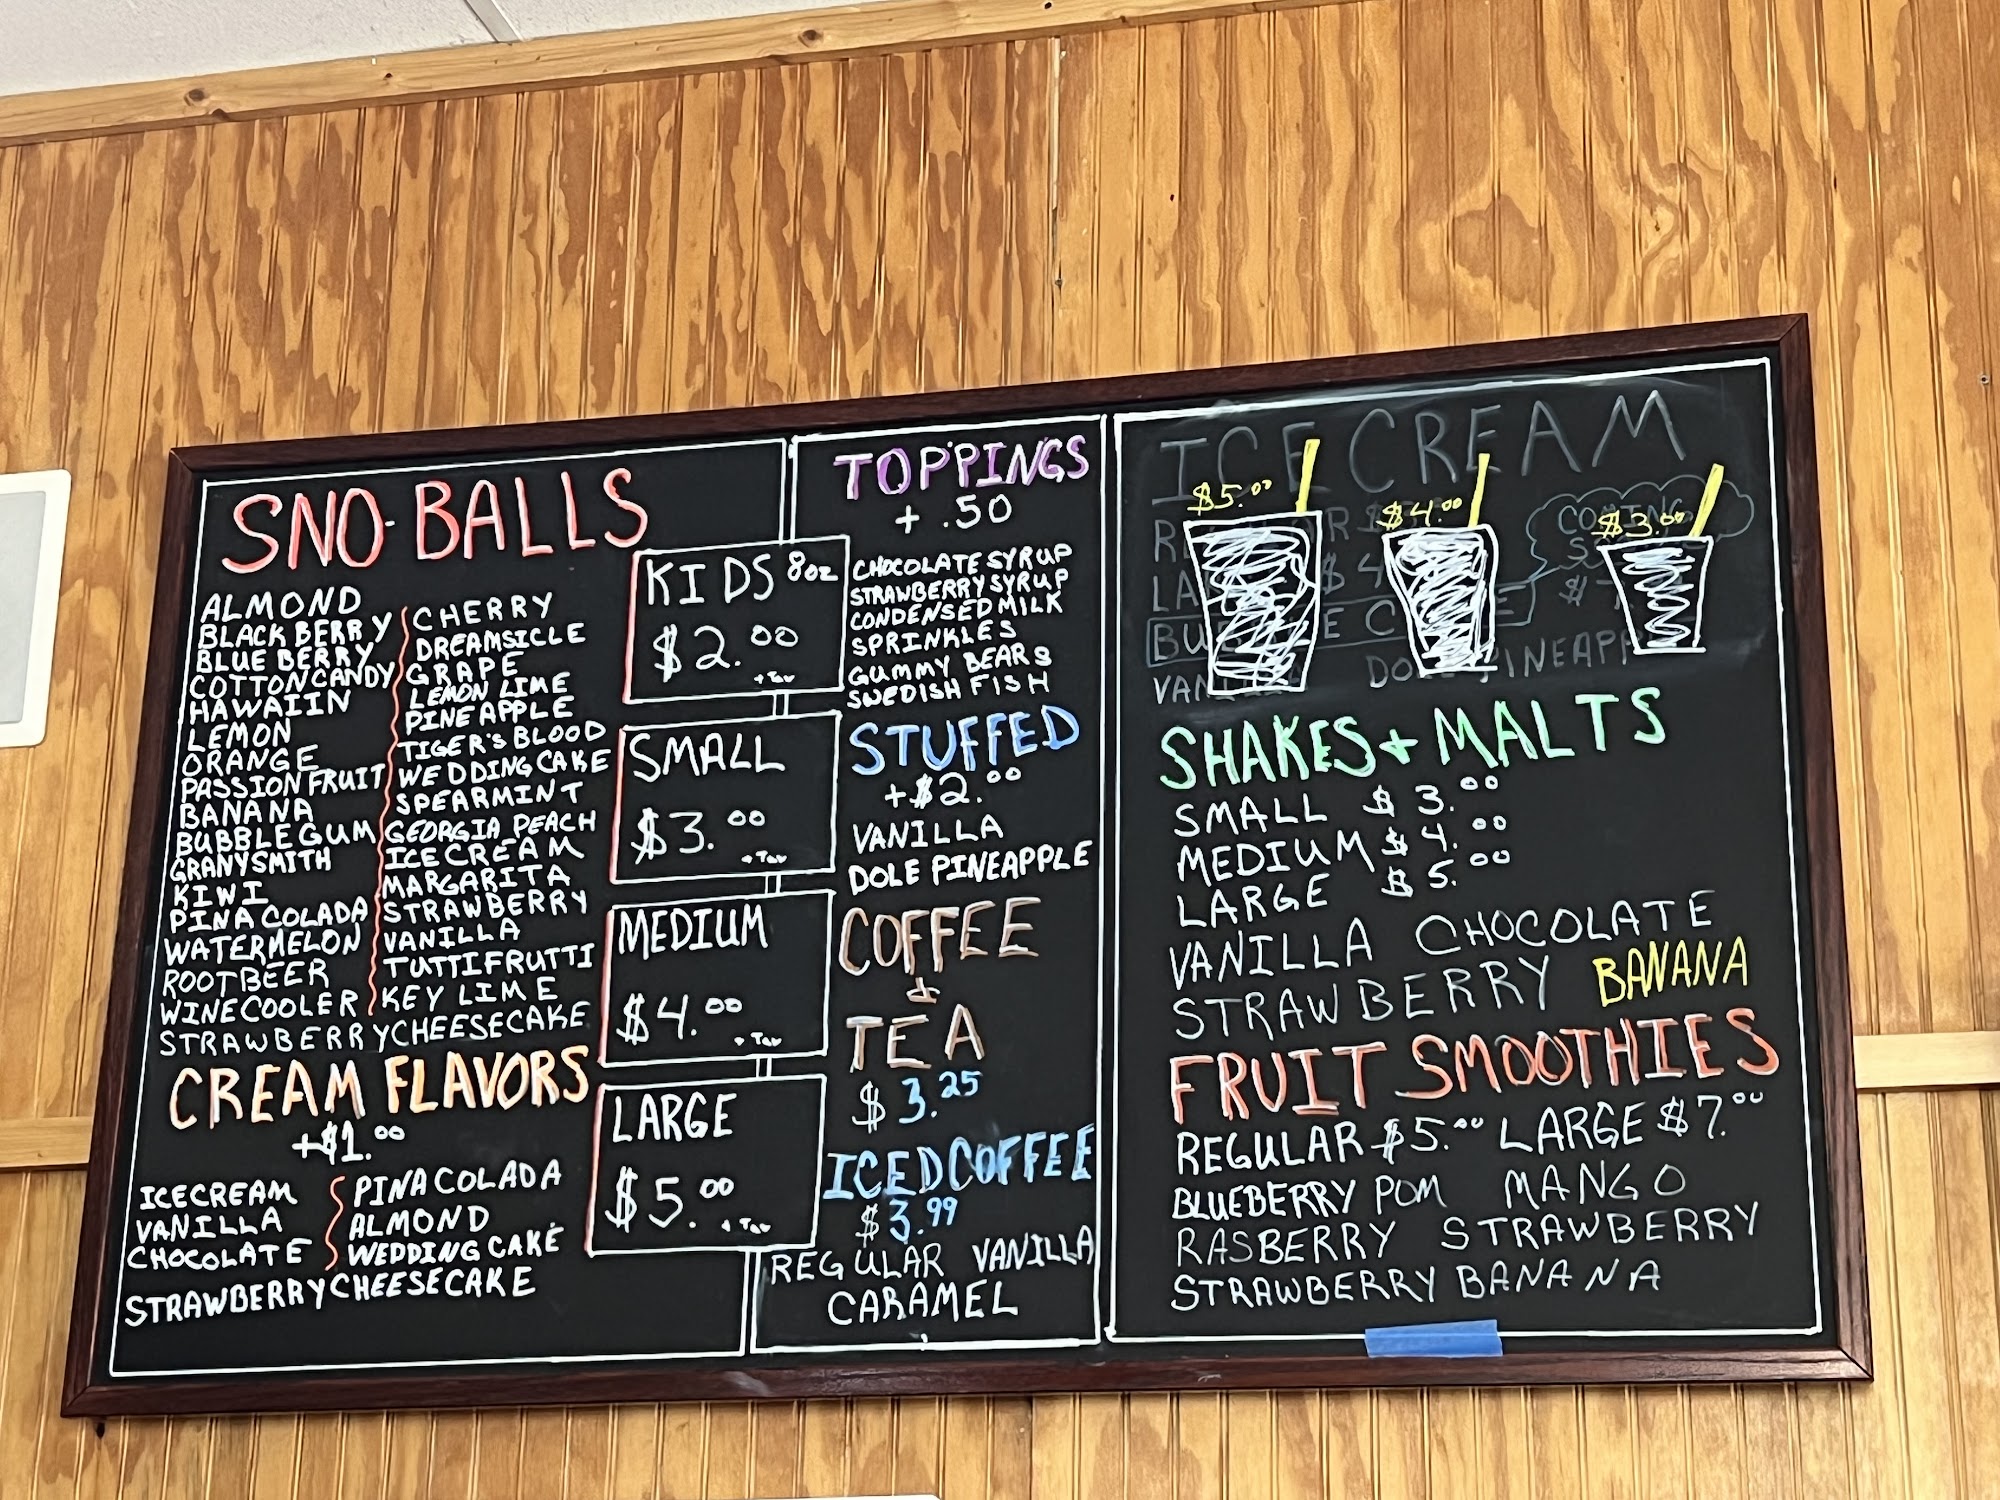 SNO-BALLS
ALMOND
BLACKBERRY
BLUEBERRY
COTTONCANDY
HAWAIIN
LEMON
ORANGE
PASSION FRUIT
BANANA
BUBBLEGUM
GRANYSMITH
KIWI
PINA COLADA
WATERMELON
ROOTBEER
WINECOOLER
STRAWBERRYCHEESECAKE
CHERRY
DREAMSICLE
GRAPE
LEMON LIME
PINEAPPLE
TIGER'S BLOOD
WEDDINGCAKE
SPEARMINT
GEORGIA PEACH
ICECREAM
MARGARITA
STRAWBERRY
VANILLA
TUTTIFRUTTI
KEY LIME
CREAM FLAVORS
+$1.00
ICECREAM
VANILLA
CHOCOLATE
STRAWBERRYCHEESECAKE
PINA COLADA
ALMOND
WEDDING CAKE
KIDS 8oz
$2.00
+Tax
SMALL
$3.00
+Tax
MEDIUM
$4.00
+Tax
LARGE
$5.00
+Tax
TOPPINGS
+ .50
CHOCOLATE SYRUP
STRAWBERRY SYRUP
CONDENSED MILK
SPRINKLES
GUMMY BEARS
SWEDISH FISH
STUFFED
+$2.00
VANILLA
DOLE PINEAPPLE
COFFEE
&
TEA
$3.25
ICED COFFEE
$3.99
REGULAR VANILLA
CARAMEL
ICE CREAM
$5.00 $4.00 $3.00
DOLE PINEAPP
SHAKES + MALTS
SMALL $3.00
MEDIUM $4.00
LARGE $5.00
VANILLA CHOCOLATE
STRAWBERRY BANANA
FRUIT SMOOTHIES
REGULAR $5.00 LARGE $7.00
BLUEBERRY POM MANGO
RASBERRY STRAWBERRY
STRAWBERRY BANANA